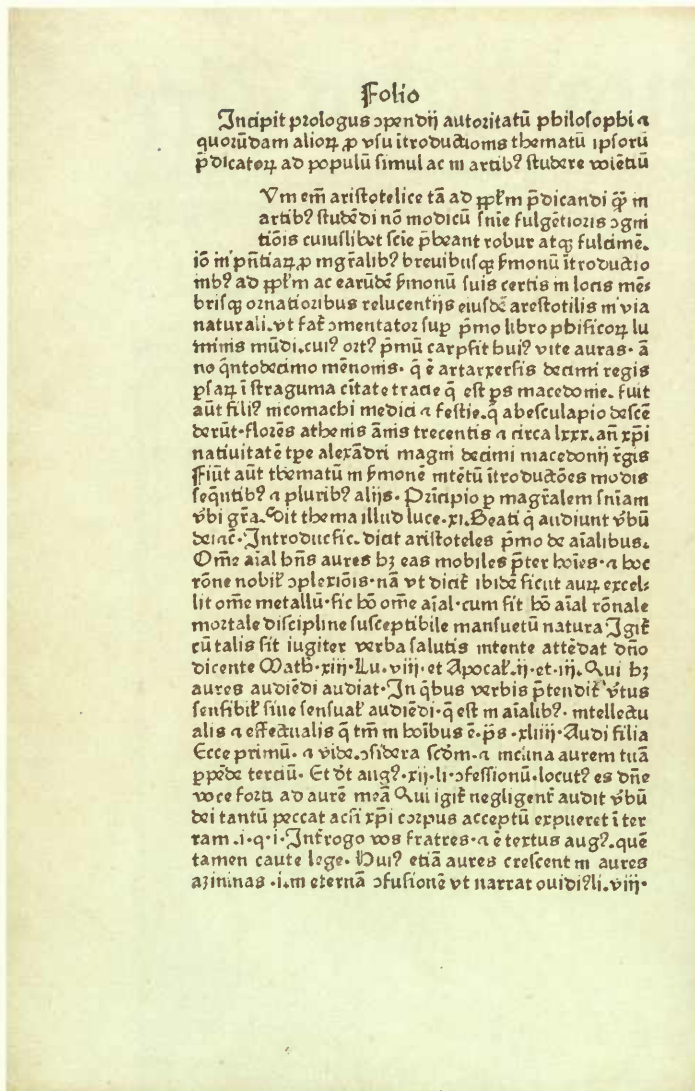 Folio
Incipit prologus ↄpendij autoritatū philosophi ⁊
quorūdam alioꝝ ꝓ vsu ītroductionis thematū ipsorū
p̄dicatoꝝ ad populū simul ac in artibꝰ studere volētiū
Vm em̄ aristotelice tā ad pp̄l'm p̄dicandi qͫ̄ in
artibꝰ studēdi nō modicū sn̄ie fulgētioris ↄgni
tiōis cuiuslibet scīe p̄beant robur atqꝫ fulcimē.
iō in pn̄tiaꝝ ꝓ mgr̄alibꝰ breuibusqꝫ s̄monū ītroductio
nibꝰ ad pp̄l'm ac earūdē s̄monū suis certis in locis mē⸗
brisqꝫ ornatioribus relucentijs eiusdē arestotilis in via
naturali. vt fat̄ ↄmentator sup p̄mo libro phisicoꝝ lu
minis mūdi. cuiꝰ ortꝰ p̄mū carpsit huiꝰ vite auras. ā
no qͥntodecimo mēnonis. q̄ ē artarxersis decimi regis
ꝑsaꝝ ī straguma cītate tracie q̄ est ꝑs macedonie. fuit
aūt filiꝰ nicomachi medici ⁊ festie. q̄ ab esculapio descē
derūt. florēs athenis ānis trecentis ⁊ circa lxxx. an̄ xp̄i
natiuitatē tp̄e alexādri magni decimi macedonij r̄gis
Fiūt aūt thematū in s̄monē intētū ītroductōes modis
seq̄ntibꝰ ⁊ pluribꝰ alijs. Pͥncipio ꝑ magr̄alem sn̄iam
v̄bi gr̄a. Sit thema illud luce. xi. Beati q̄ audiunt v̄bū
dei ⁊c̄. Introduc sic. dicit aristoteles p̄mo de aīalibus.
Om̄e aīal hn̄s aures hꝫ eas mobiles p̄ter hoīes. ⁊ hoc
rōne nobil' ↄplexiōis. nā vt dicit̄ ibidē sicut auꝝ excel⸗
lit om̄e metallū. sic hō om̄e aīal. cum sit hō aīal rōnale
mortale discipline susceptibile mansuetū natura Igit̄
cū talis sit iugiter verba salutis intente attēdat dn̄o
dicente Math. xiij. Lu. viij. et Apocal'. ij. et. iij. Qui hꝫ
aures audiēdi audiat. In qͥbus verbis p̄tendit̄ v̄tus
sensibil' siue sensual' audiēdi. q̄ est in aīalibꝰ. intellectu
alis ⁊ effectualis q̄ tm̄ in hoībus ē. p̄s. xliiij. Audi filia
Ecce primū. ⁊ vide. ↄsidera scd̄m. ⁊ inclina aurem tuā
ꝓpēde terciū. Et dt̄ augꝰ. xij. li. ↄfessionū. locutꝰ es dn̄e
voce forti ad aurē meā Qui igit̄ negligent̄ audit v̄bū
dei tantū peccat acsi xp̄i corpus acceptū expueret ī ter
ram. i. q. i. Inf̄rogo vos fratres. ⁊ ē textus augꝰ. quē
tamen caute lege. Huiꝰ etiā aures crescent in aures
azininas .i. in eternā ↄfusionē vt narrat ouidiꝰ li. viij.